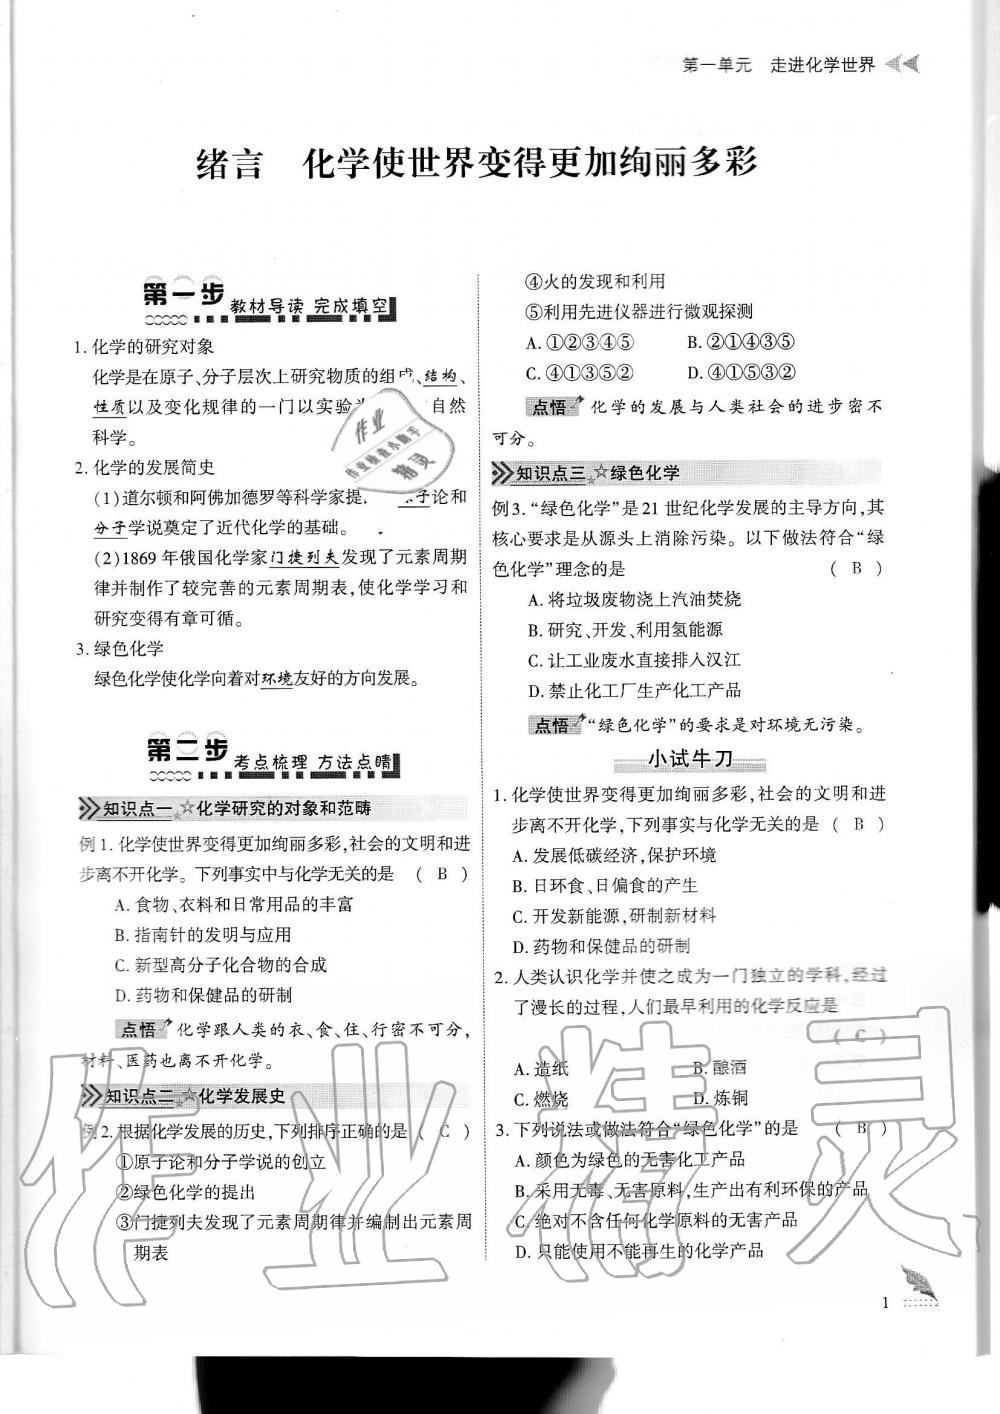 第一单元 走进化学世界
绪言 化学使世界变得更加绚丽多彩
第一步 教材导读 完成填空
1. 化学的研究对象
化学是在原子、分子层次上研究物质的组成、结构、
性质以及变化规律的一门以实验 自然
科学。
2. 化学的发展简史
(1)道尔顿和阿佛加德罗等科学家提 子论和
分子学说奠定了近代化学的基础。
(2)1869 年俄国化学家门捷列夫发现了元素周期
律并制作了较完善的元素周期表,使化学学习和
研究变得有章可循。
3. 绿色化学
绿色化学使化学向着对环境友好的方向发展。
第二步 考点梳理 方法点睛
知识点一 ☆化学研究的对象和范畴
例 1. 化学使世界变得更加绚丽多彩,社会的文明和进
步离不开化学。下列事实中与化学无关的是 ( B )
A. 食物、衣料和日常用品的丰富
B. 指南针的发明与应用
C. 新型高分子化合物的合成
D. 药物和保健品的研制
点悟 化学跟人类的衣、食、住、行密不可分,
材料、医药也离不开化学。
知识点二 ☆化学发展史
例 2. 根据化学发展的历史,下列排序正确的是 ( C )
①原子论和分子学说的创立
②绿色化学的提出
③门捷列夫发现了元素周期律并编制出元素周
期表
④火的发现和利用
⑤利用先进仪器进行微观探测
A. ①②③④⑤ B. ②①④③⑤
C. ④①③⑤② D. ④①⑤③②
点悟 化学的发展与人类社会的进步密不
可分。
知识点三 ☆绿色化学
例 3. “绿色化学”是 21 世纪化学发展的主导方向,其
核心要求是从源头上消除污染。以下做法符合“绿
色化学”理念的是 ( B )
A. 将垃圾废物浇上汽油焚烧
B. 研究、开发、利用氢能源
C. 让工业废水直接排入汉江
D. 禁止化工厂生产化工产品
点悟 “绿色化学”的要求是对环境无污染。
小试牛刀
1. 化学使世界变得更加绚丽多彩,社会的文明和进
步离不开化学,下列事实与化学无关的是 ( B )
A. 发展低碳经济,保护环境
B. 日环食、日偏食的产生
C. 开发新能源,研制新材料
D. 药物和保健品的研制
2. 人类认识化学并使之成为一门独立的学科,经过
了漫长的过程,人们最早利用的化学反应是
( C )
A. 造纸 B. 酿酒
C. 燃烧 D. 炼铜
3. 下列说法或做法符合“绿色化学”的是 ( B )
A. 颜色为绿色的无害化工产品
B. 采用无毒、无害原料,生产出有利环保的产品
C. 绝对不含任何化学原料的无害产品
D. 只能使用不能再生的化学产品
1
作业
作业检查小助手
精灵
作业精灵